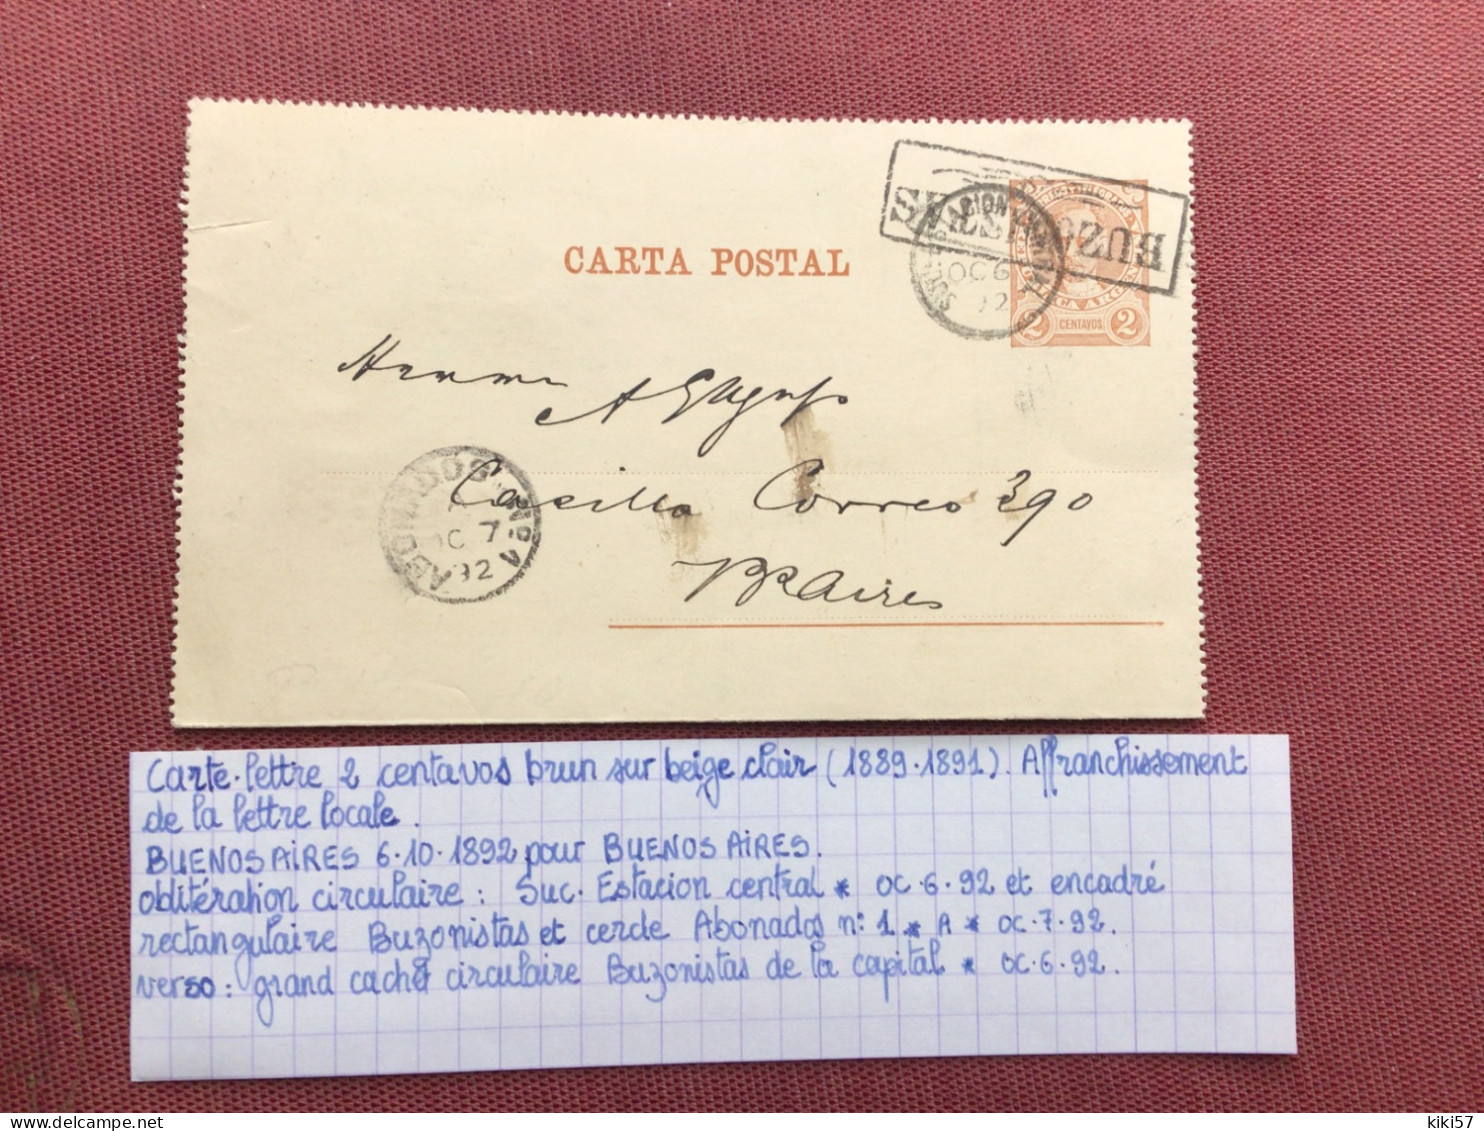 CARTA POSTAL
BUZONISTAS
SUC. ESTACION CENTRAL
OC 6
92
2 CENTAVOS 2
Herrn
A
Casilla Correo 390
BsAires
ABONADOS Nº 1
A
OC 7
92
Carte-lettre 2 centavos brun sur beige clair (1889-1891). Affranchissement
de la lettre locale.
BUENOS AIRES 6.10.1892 pour BUENOS AIRES.
oblitération circulaire : Suc. Estacion central * OC.6.92 et encadré
rectangulaire Buzonistas et cercle Abonados n: 1 * A * OC.7.92.
verso : grand cachet circulaire Buzonistas de la capital * OC.6.92.
kiki57